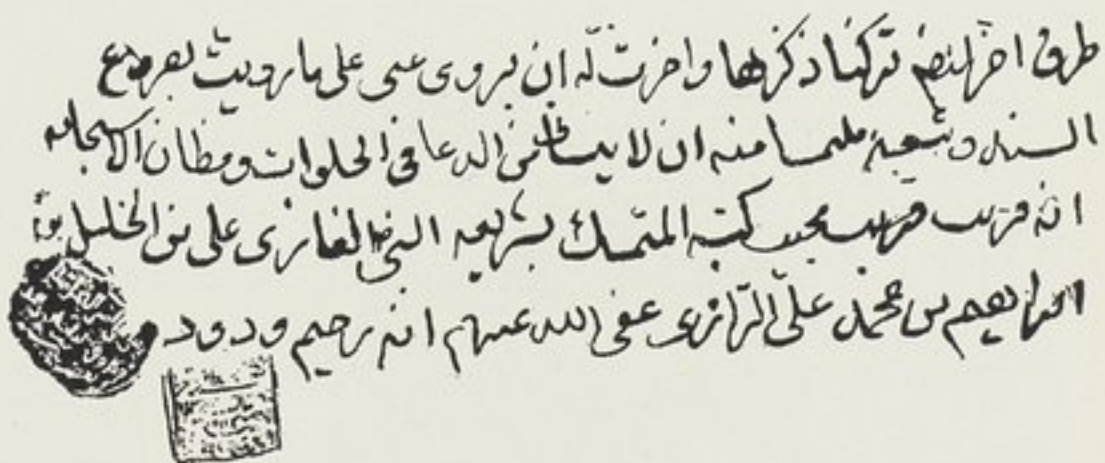 طرق اخر لنضم تركنا ذكرها واجزت له ان يروى عنى على ما رويت بصر
السند و ملتمسا منه ان لا ينسانى من الدعا فى الخلوات ومظان الاستجابه
انه قريب مجيب كتبه المتمسك بشريعه النبى الغازى على بن الخليل بن
ابراهيم بن محمد على الرازى عفى الله عنهم انه رحيم ودود